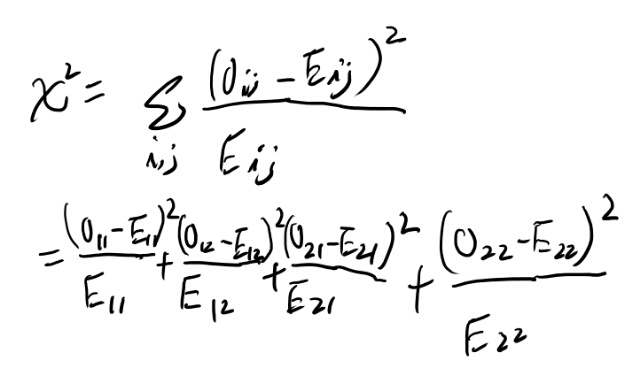 χ² = Σ_{i,j} (O_{ij} - E_{ij})² / E_{ij}
= (O₁₁ - E₁₁)² / E₁₁ + (O₁₂ - E₁₂)² / E₁₂ + (O₂₁ - E₂₁)² / E₂₁ + (O₂₂ - E₂₂)² / E₂₂